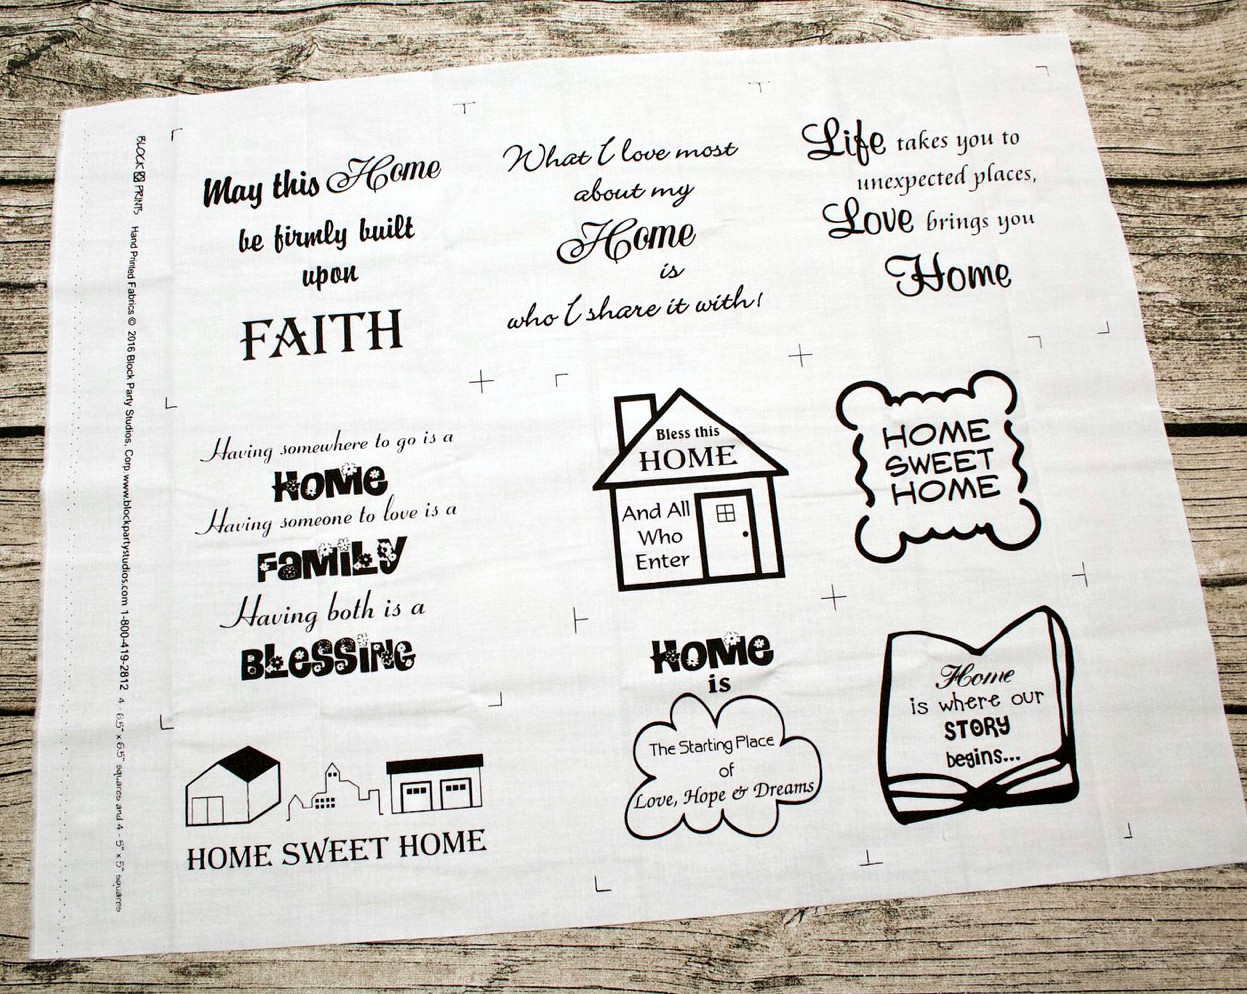 BLOCK PRINTS Hand Printed Fabrics © 2016 Block Party Studios, Corp www.blockpartystudios.com 1-800-419-2812 4 - 6.5" x 6.5" squares and 4 - 5" x 5" squares
May this Home
be firmly built
upon
FAITH
What I love most
about my
Home
is
who I share it with!
Life takes you to
unexpected places,
Love brings you
Home
Having somewhere to go is a
HOMe
Having someone to love is a
FaMiLY
Having both is a
BLeSSiNG
Bless this
HOME
And All
Who
Enter
HOME
SWEET
HOME
HOME SWEET HOME
HOMe
is
The Starting Place
of
Love, Hope & Dreams
Home
is where our
STORY
begins...